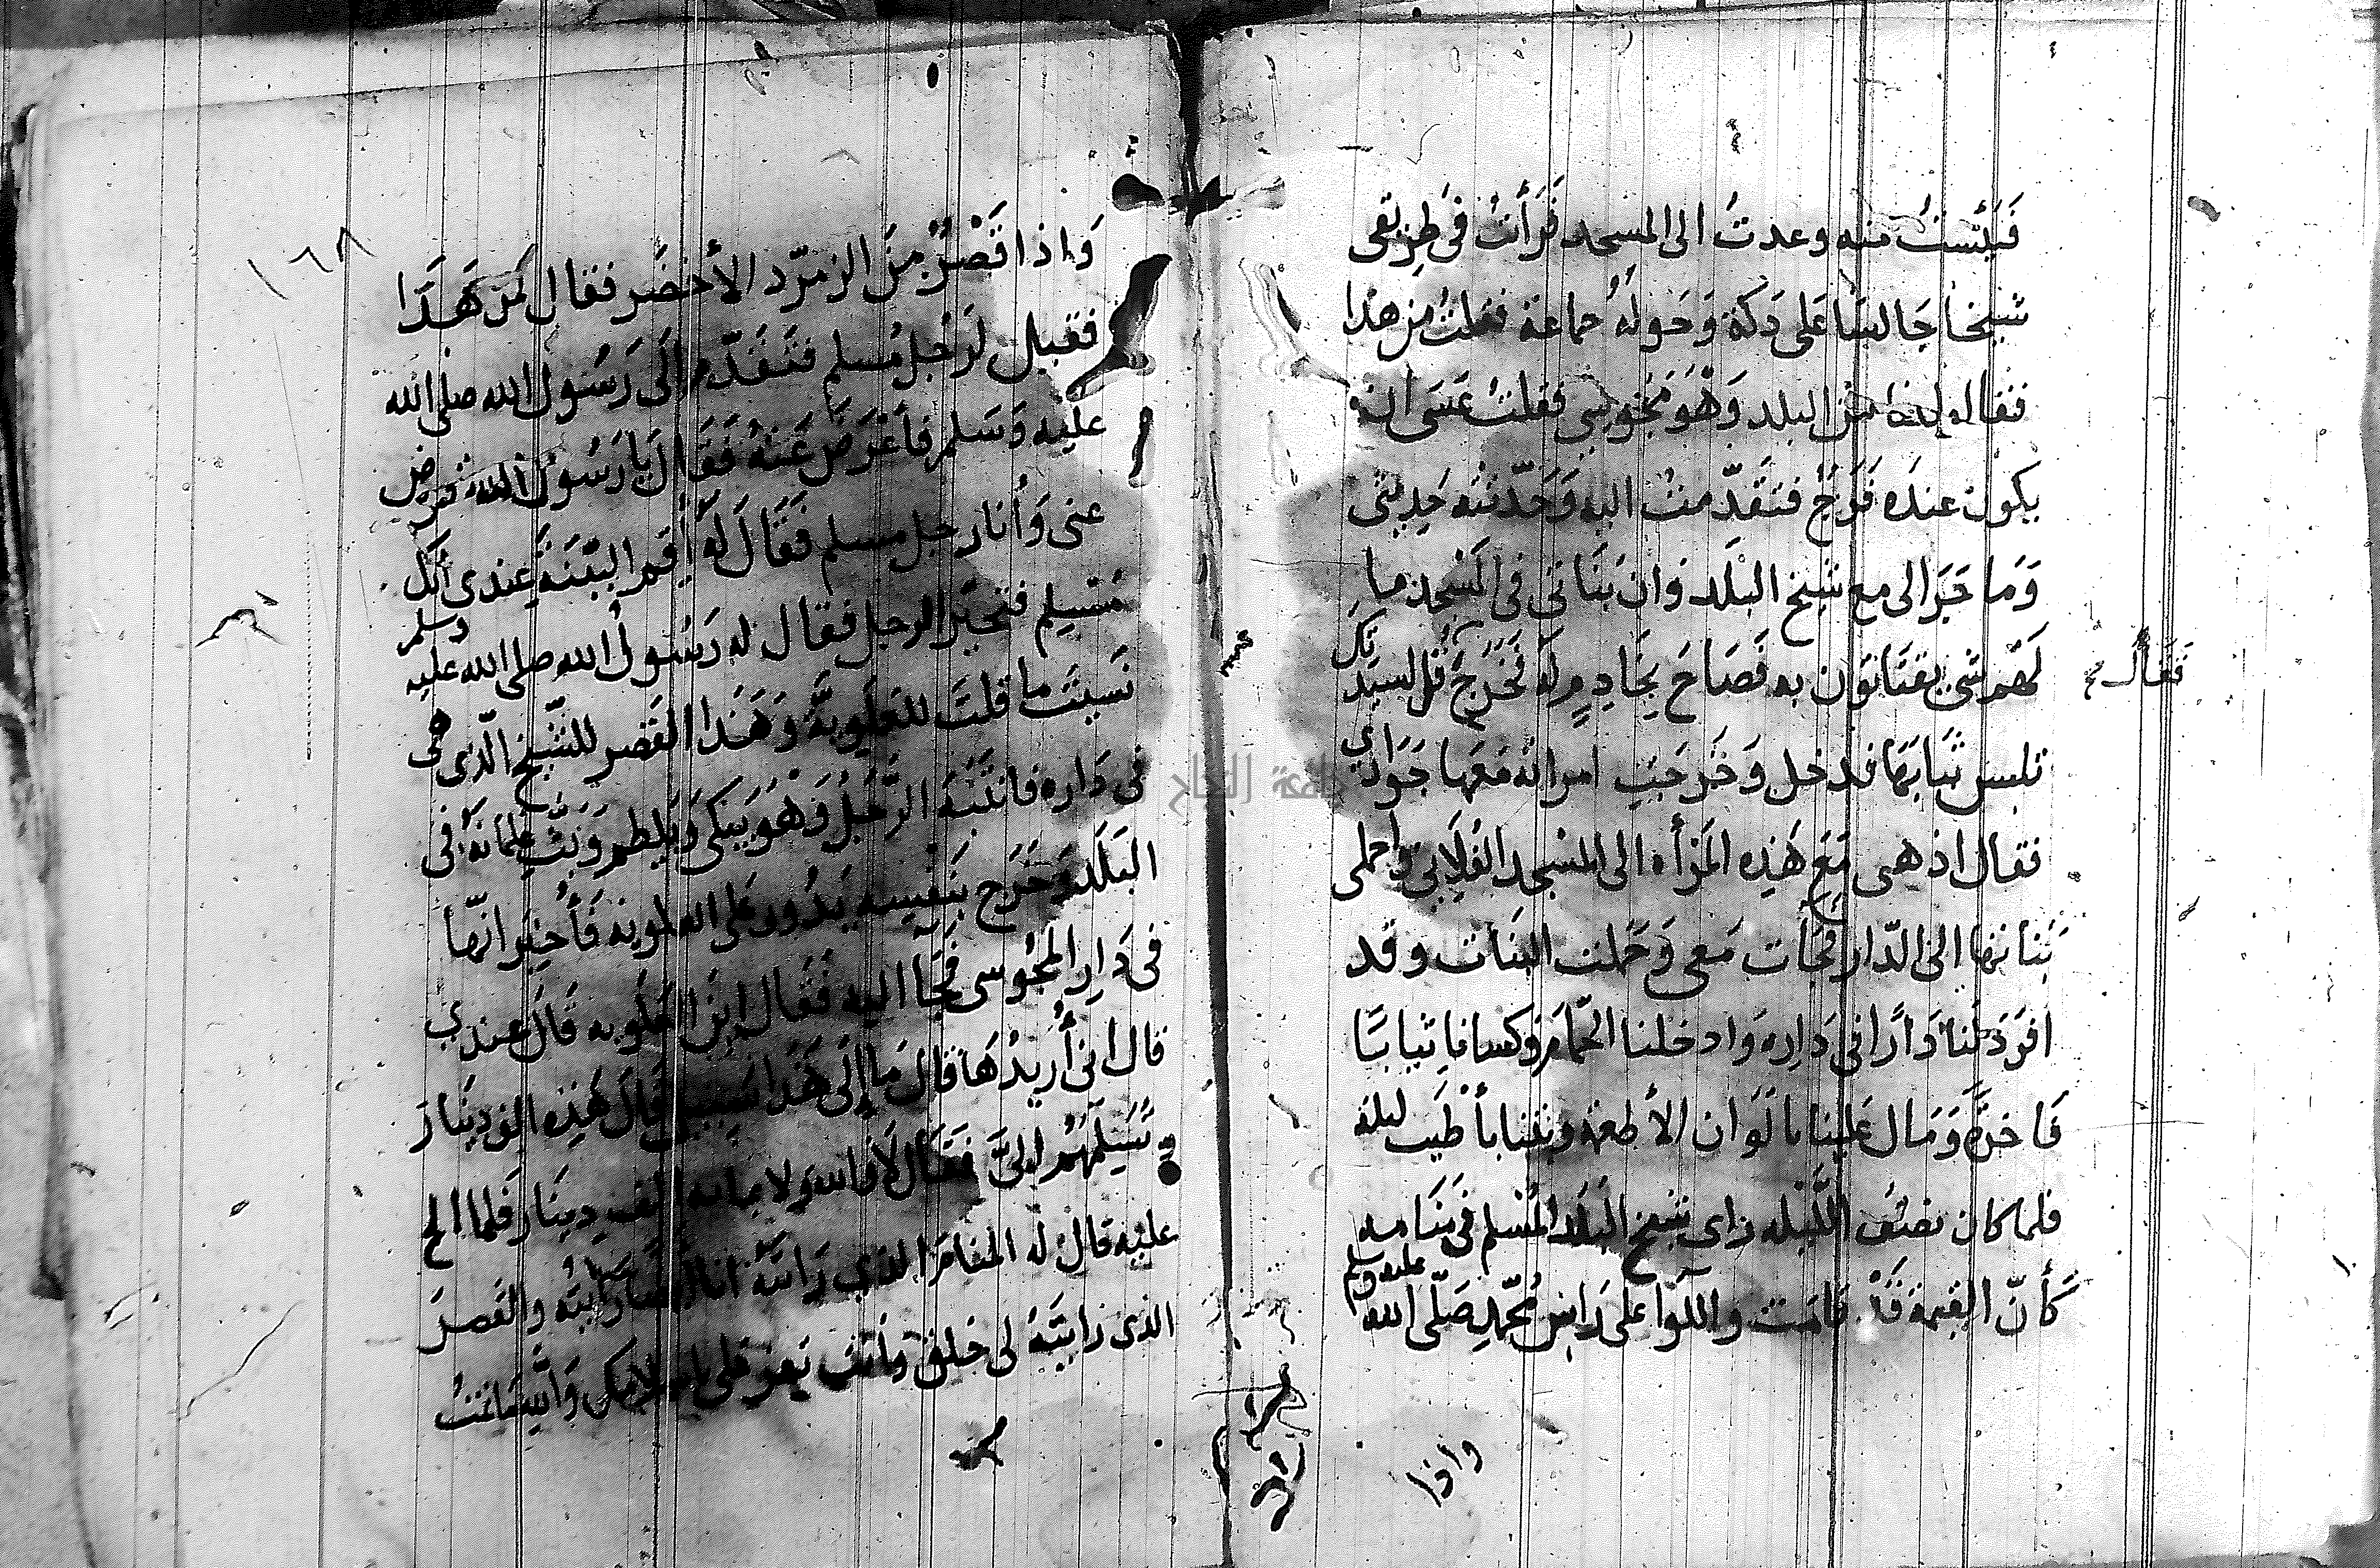 فَيَئِسْتُ منه وعدتُ الى المسجد فَرَأَيتُ في طريقى
شيخًا جَالسًا عَلى دَكة وَحَولَهُ جماعة فقلتُ من هذا
فقالوا البلد وَهُوَ مَجُوسِى فقلتُ عَسَى ان
يكون عندَه فَرَجٌ فتقَدّمتُ اليه وَحَدّثته حَدِيثى
وَمَا جَرَا لى مع شيخ البَلَد وَان بَنَاتى في المَسْجد ما
لَهُم شى يقتَاتون به فَصَاحَ بِخَادِمٍ لَه فَخَرَجَ قُل لسيدتك
فَقَالَ
تلبس ثيَابَهَا فدخل وَخَرجَت امراته مَعَهَا جَوَارى
فقال اذهبى مَعَ هَذِه المَرْأه الى المسْجد الفُلَانى واحملى
بَنَاتها الى الدّار فجَات مَعى وَحَملت البَنَات وقد
افرَدَ لنَا دَارًا فى دَارِه وَادخلنا الحَمّامَ وَكسانا ثيَابًا
فَاخرَةً وَمَال عَلينا بالوَان الأطعمة وبتنا بأطيَب ليلة
فلما كان نصْفُ اللّيْله رَاى شيخ البَلَد المُسْلم فى مَنَامه
كَأنّ القِيمة قَدْ قَامَت واللوَا على رَاس مُحَمّدٍ صَلّى الله عليه وسلم
واذا
١٦٨
وَاذا قَصْرٌ مِنَ الزمرّد الأخضَر فقال لمن هَذَا
فقيل لرَجُل مُسلم فتَقَدّم إلَى رَسُول الله صلى الله
عليه وَسَلم فأعْرَضَ عَنهُ فَقَالَ يَا رَسُولَ الله تعرض
عنى وَأنا رجل مسلم فَقَالَ لَهُ أقم البَيّنَةَ عندى أنك
مُسْلِم فتحيّر الرجل فقال له رَسُولُ الله صلى الله عليه وسلم
نَسيتَ ما قلتَ للعَلَويّة وَهَذَا القَصر للشّيخ الّذى هى
فى دَاره فانتَبَهَ الرّجُلُ وَهُوَ يَبكى وَيَلطم وَبَثّ غِلمَانَهُ فى
البَلَد وَخَرَج بنَفسِه يَدُور على العلويه فَأُخبِرَ انّها
فى دَارِ المَجُوسى فَجَا اليه فَقَال اين العَلَويه قَالَ عندى
قال انى أُريدُهَا قَال مَا إلَى هَذَا سَبيل قَالَ هَذِه الف دينَار
وتُسَلّمُهُم الىَّ فَقَالَ لَا وَالله وَلا بمائة الف دينَار فَلما الح
عليه قال له المنَامَ الذى رَايتَهُ انا ايضا رَايتُه والقَصرَ
الذى رَايتَهُ لى خلق وأنت تعز على وَالله مَا نمتُ